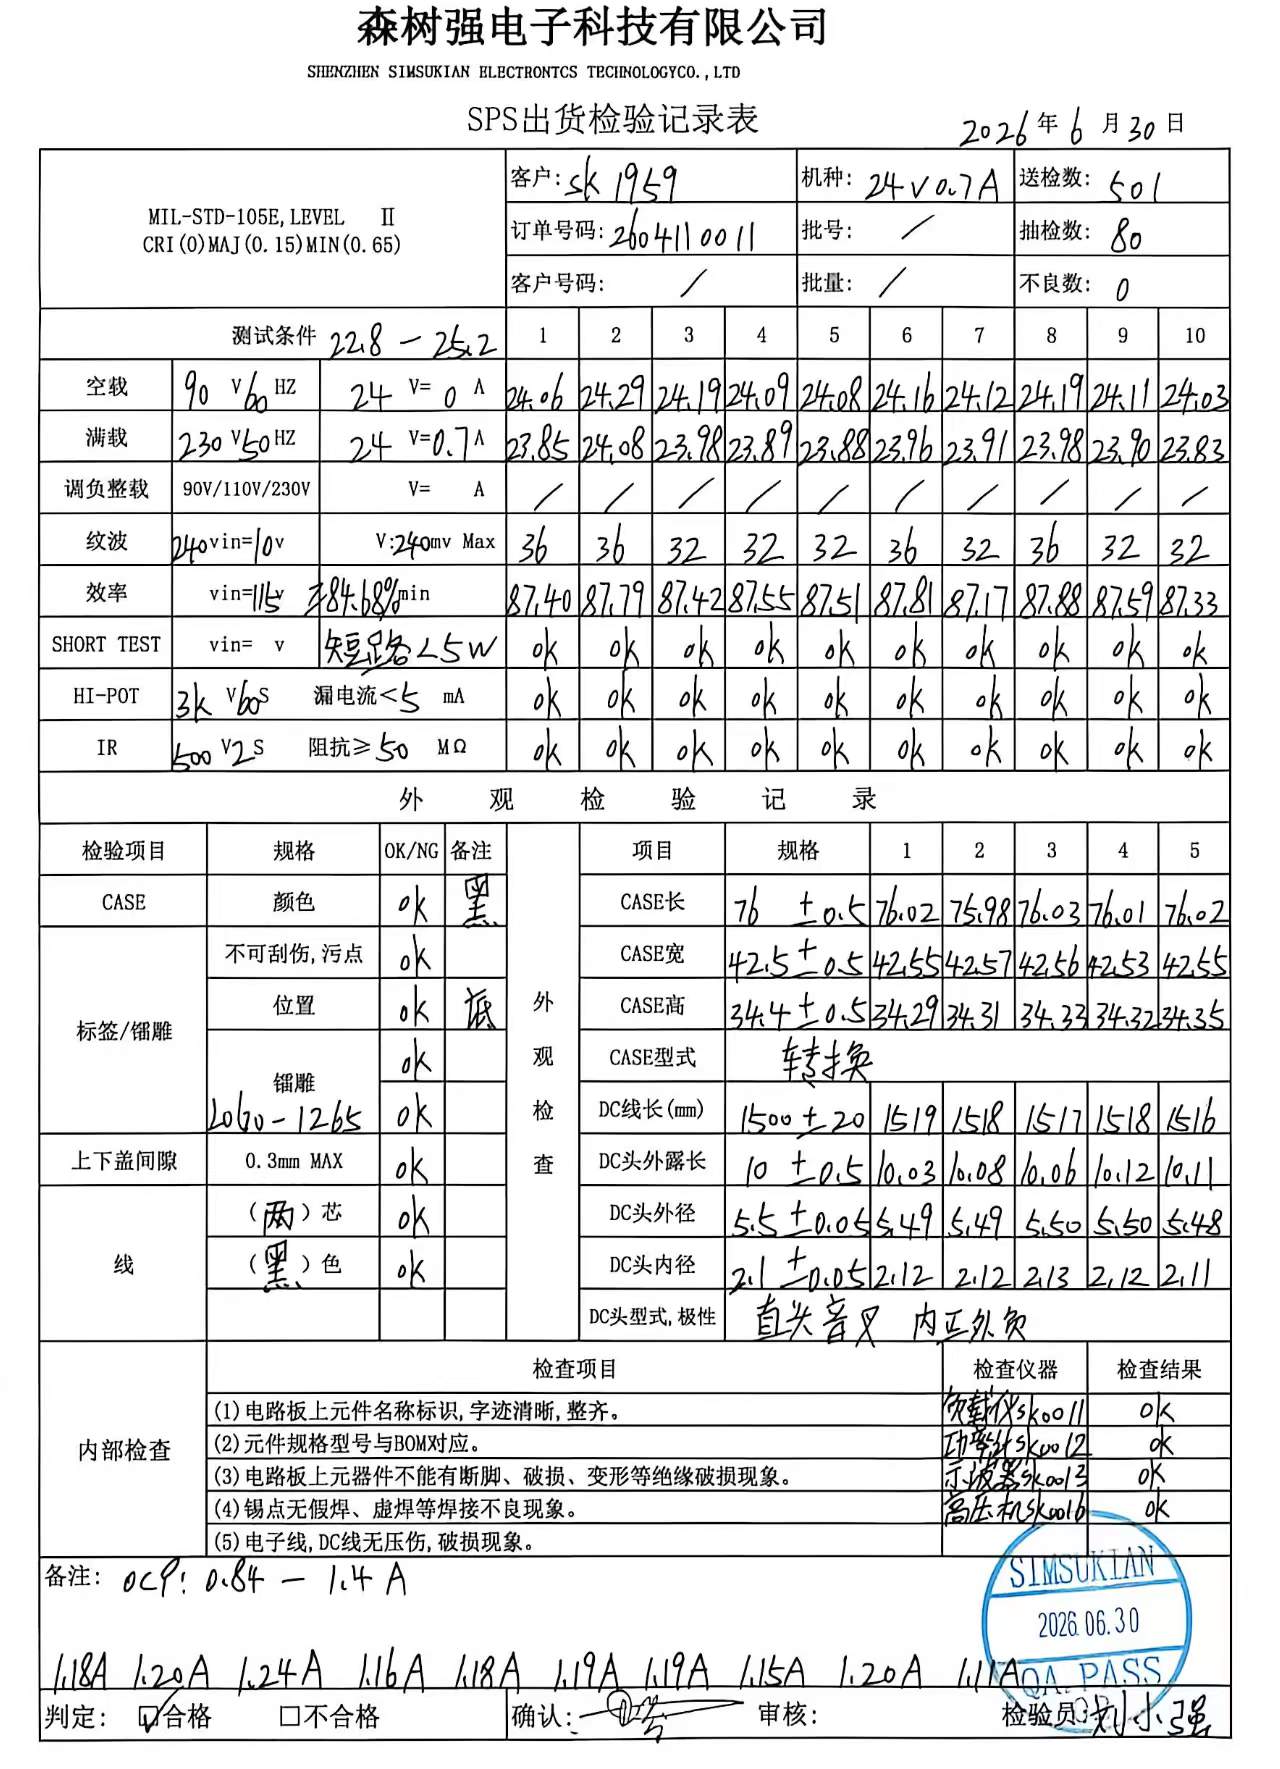 森树强电子科技有限公司
SHENZHEN SIMSUKIAN ELECTRONTCS TECHNOLOGYCO.,LTD
SPS出货检验记录表
2026年6月30日
MIL-STD-105E,LEVEL Ⅱ
CRI(0)MAJ(0.15)MIN(0.65)
客户:SK1959 机种:24V0.7A 送检数:501
订单号码:2604110011 批号:/ 抽检数:80
客户号码:/ 批量:/ 不良数:0
测试条件 22.8—25.2 1 2 3 4 5 6 7 8 9 10
空载 90V60HZ 24V=0A 24.06 24.29 24.19 24.09 24.08 24.16 24.12 24.19 24.11 24.03
满载 230V50HZ 24V=0.7A 23.85 24.08 23.98 23.89 23.88 23.96 23.91 23.98 23.90 23.83
调负整载 90V/110V/230V V= A / / / / / / / / / /
纹波 240vin=10v V:240mv Max 36 36 32 32 32 36 32 36 32 32
效率 vin=115v ≥84.68%min 87.40 87.79 87.42 87.55 87.51 87.81 87.17 87.88 87.59 87.33
SHORT TEST vin= v 短路<5W ok ok ok ok ok ok ok ok ok ok
HI-POT 3kV60S 漏电流<5mA ok ok ok ok ok ok ok ok ok ok
IR 500V2S 阻抗≥50MΩ ok ok ok ok ok ok ok ok ok ok
外观检验记录
检验项目 规格 OK/NG 备注 外观检查 项目 规格 1 2 3 4 5
CASE 颜色 ok 黑 CASE长 76±0.5 76.02 75.98 76.03 76.01 76.02
标签/镭雕 不可刮伤,污点 ok CASE宽 42.5±0.5 42.55 42.57 42.56 42.53 42.55
位置 ok 底 CASE高 34.4±0.5 34.29 34.31 34.33 34.32 34.35
镭雕 ok CASE型式 转换
-1265 ok DC线长(mm) 1500±20 1519 1518 1517 1518 1516
上下盖间隙 0.3mm MAX ok DC头外露长 10±0.5 10.03 10.08 10.06 10.12 10.11
线 (两)芯 ok DC头外径 5.5±0.05 5.49 5.49 5.50 5.50 5.48
(黑)色 ok DC头内径 2.1±0.05 2.12 2.12 2.13 2.12 2.11
DC头型式,极性 直头音叉 内正外负
内部检查 检查项目 检查仪器 检查结果
(1)电路板上元件名称标识,字迹清晰,整齐。 负载仪SK0011 ok
(2)元件规格型号与BOM对应。 功率计SK0012 ok
(3)电路板上元器件不能有断脚、破损、变形等绝缘破损现象。 示波器SK0013 ok
(4)锡点无假焊、虚焊等焊接不良现象。 高压机SK0016 ok
(5)电子线,DC线无压伤,破损现象。
备注: OCP: 0.84—1.4A
SIMSUKIAN
2026.06.30
QA. PASS
1.18A 1.20A 1.24A 1.16A 1.18A 1.19A 1.19A 1.15A 1.20A 1.11A
判定: ☑合格 □不合格 确认: 审核: 检验员:刘小强